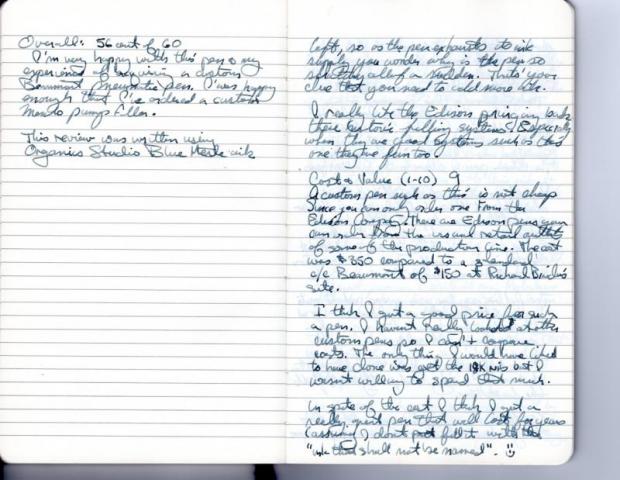 Overall: 56 out of 60
I'm very happy with this pen & my
experience of acquiring a custom
Beaumont Pneumatic pen. I was happy
enough that I've ordered a custom
Menlo pump filler.
This review was written using
Organics Studio Blue Merle ink
left, so as the pen exhausts its ink
supply you wonder why is the pen so
all of a sudden. That's your
clue that you need to add more ink.
I really like the Edison bringing back
these historic filling systems. Especially
when they are good systems such as this
one they're fun too
Cost & Value (1-10) 9
A custom pen such as this is not cheap
Since you can only order one from the
Edison Company. There are Edison pens you
can order from the usual retail outlets
of some of the production line. The cost
was $350 compared to a standard
c/c Beaumont of $150 at Richard Binder's
site.
I think I got a good price for such
a pen. I haven't really looked at other
custom pens so I can't compare
costs. The only thing I would have liked
to have done was get the 18K nib but I
wasn't willing to spend that much.
In spite of the cost I think I got a
really great pen that will last for years
(assuming I don't fill it with the
"ink that shall not be named". ☺